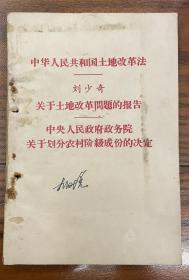 中华人民共和国土地改革法
刘少奇
关于土地改革問題的报告
中央人民政府政务院
关于划分农村阶級成份的决定